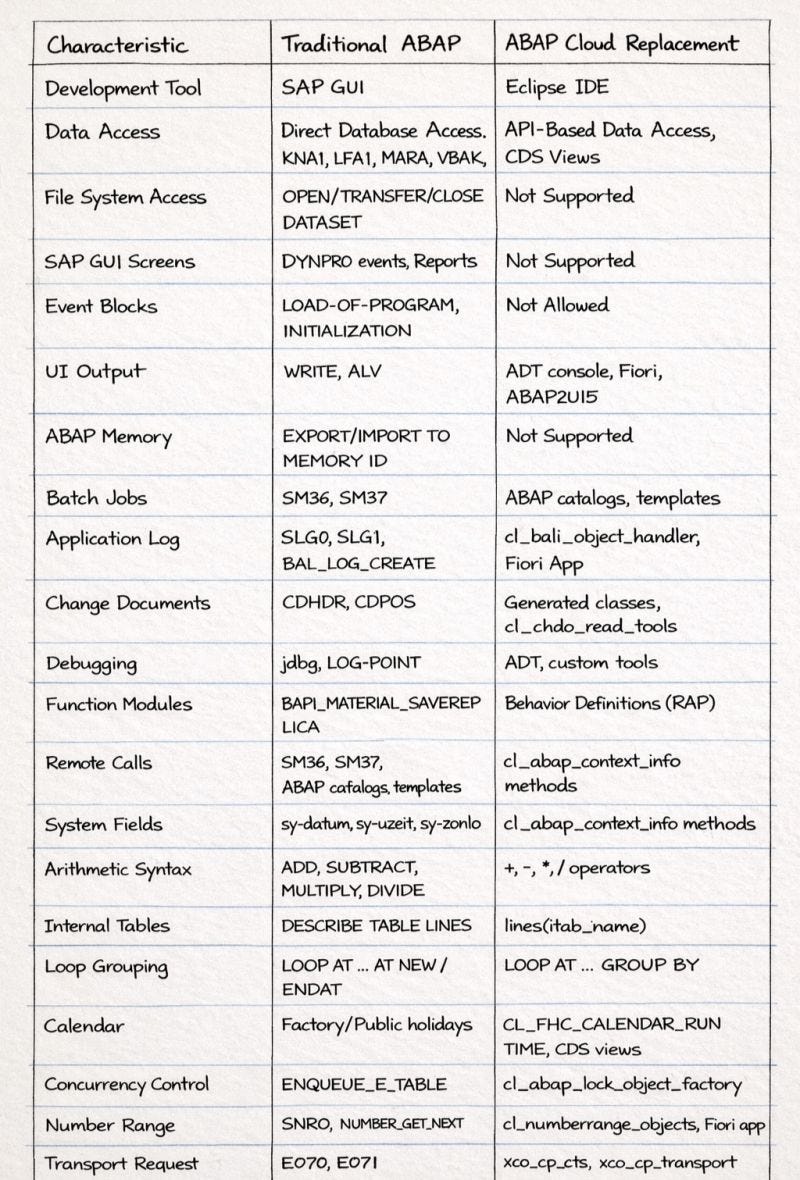 Characteristic Traditional ABAP ABAP Cloud Replacement
Development Tool SAP GUI Eclipse IDE
Data Access Direct Database Access. API-Based Data Access,
KNA1, LFA1, MARA, VBAK, CDS Views
File System Access OPEN/TRANSFER/CLOSE Not Supported
DATASET
SAP GUI Screens DYNPRO events, Reports Not Supported
Event Blocks LOAD-OF-PROGRAM, Not Allowed
INITIALIZATION
UI Output WRITE, ALV ADT console, Fiori,
ABAP2UI5
ABAP Memory EXPORT/IMPORT TO Not Supported
MEMORY ID
Batch Jobs SM36, SM37 ABAP catalogs, templates
Application Log SLG0, SLG1, cl_bali_object_handler,
BAL_LOG_CREATE Fiori App
Change Documents CDHDR, CDPOS Generated classes,
cl_chdo_read_tools
Debugging jdbg, LOG-POINT ADT, custom tools
Function Modules BAPI_MATERIAL_SAVEREP Behavior Definitions (RAP)
LICA
Remote Calls SM36, SM37, cl_abap_context_info
ABAP cafalogs, templates methods
System Fields sy-datum, sy-uzeit, sy-zonlo cl_abap_context_info methods
Arithmetic Syntax ADD, SUBTRACT, +, -, *, / operators
MULTIPLY, DIVIDE
Internal Tables DESCRIBE TABLE LINES lines(itab_name)
Loop Grouping LOOP AT ... AT NEW / LOOP AT ... GROUP BY
ENDAT
Calendar Factory/Public holidays CL_FHC_CALENDAR_RUN
TIME, CDS views
Concurrency Control ENQUEUE_E_TABLE cl_abap_lock_object_factory
Number Range SNRO, NUMBER_GET_NEXT cl_numberrange_objects, Fiori app
Transport Request E070, E071 xco_cp_cts, xco_cp_transport